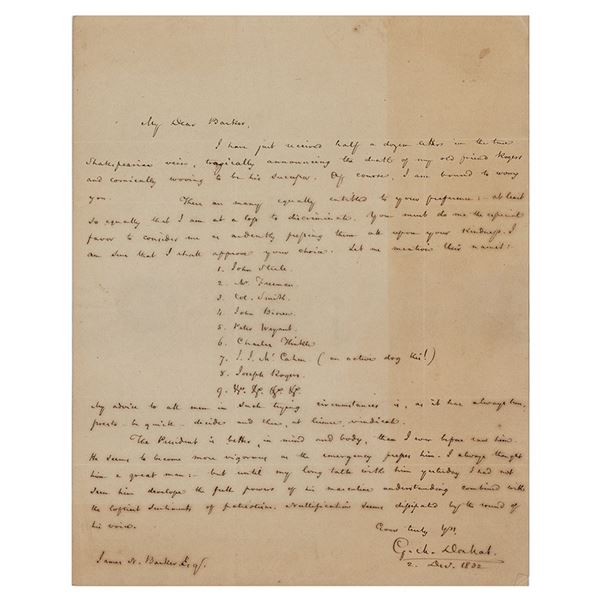 My Dear Barker,
I have just received half a dozen letters in the true
Shakespearian vein, tragically announcing the death of my old friend Rogers
and comically wooing to be his successor. Of course, I am bound to worry
you.
There are many equally entitled to your preference: at least
so equally that I am at a loss to discriminate. You must do me the especial
favor to consider me as ardently pressing them all upon your kindness. I
am sure that I shall approve your choice. Let me mention their names:
1. John Steele.
2. Mr. Freeman.
3. Col. Smith.
4. John Brown.
5. Peter Weyant.
6. Charles Hinkle
7. J. J. McCahen. (an active dog this!)
8. Joseph Rogers.
9. &c. &c. &c. &c.
My advice to all men in such trying circumstances is, as it has always been,
presto - be quick - decide and then, at leisure, vindicate.
The President is better, in mind and body, than I ever before saw him.
He seems to become more vigorous as the emergency presses him. I always thought
him a great man: - but until my long talk with him yesterday I had not
seen him develope the full powers of his masculine understanding combined with
the loftiest sentiments of patriotism. Nullification seems dissipated by the sound of
his voice.
Ever truly Yrs.
G. M. Dallas.
2. Dec. 1832
James N. Barker Esqr.